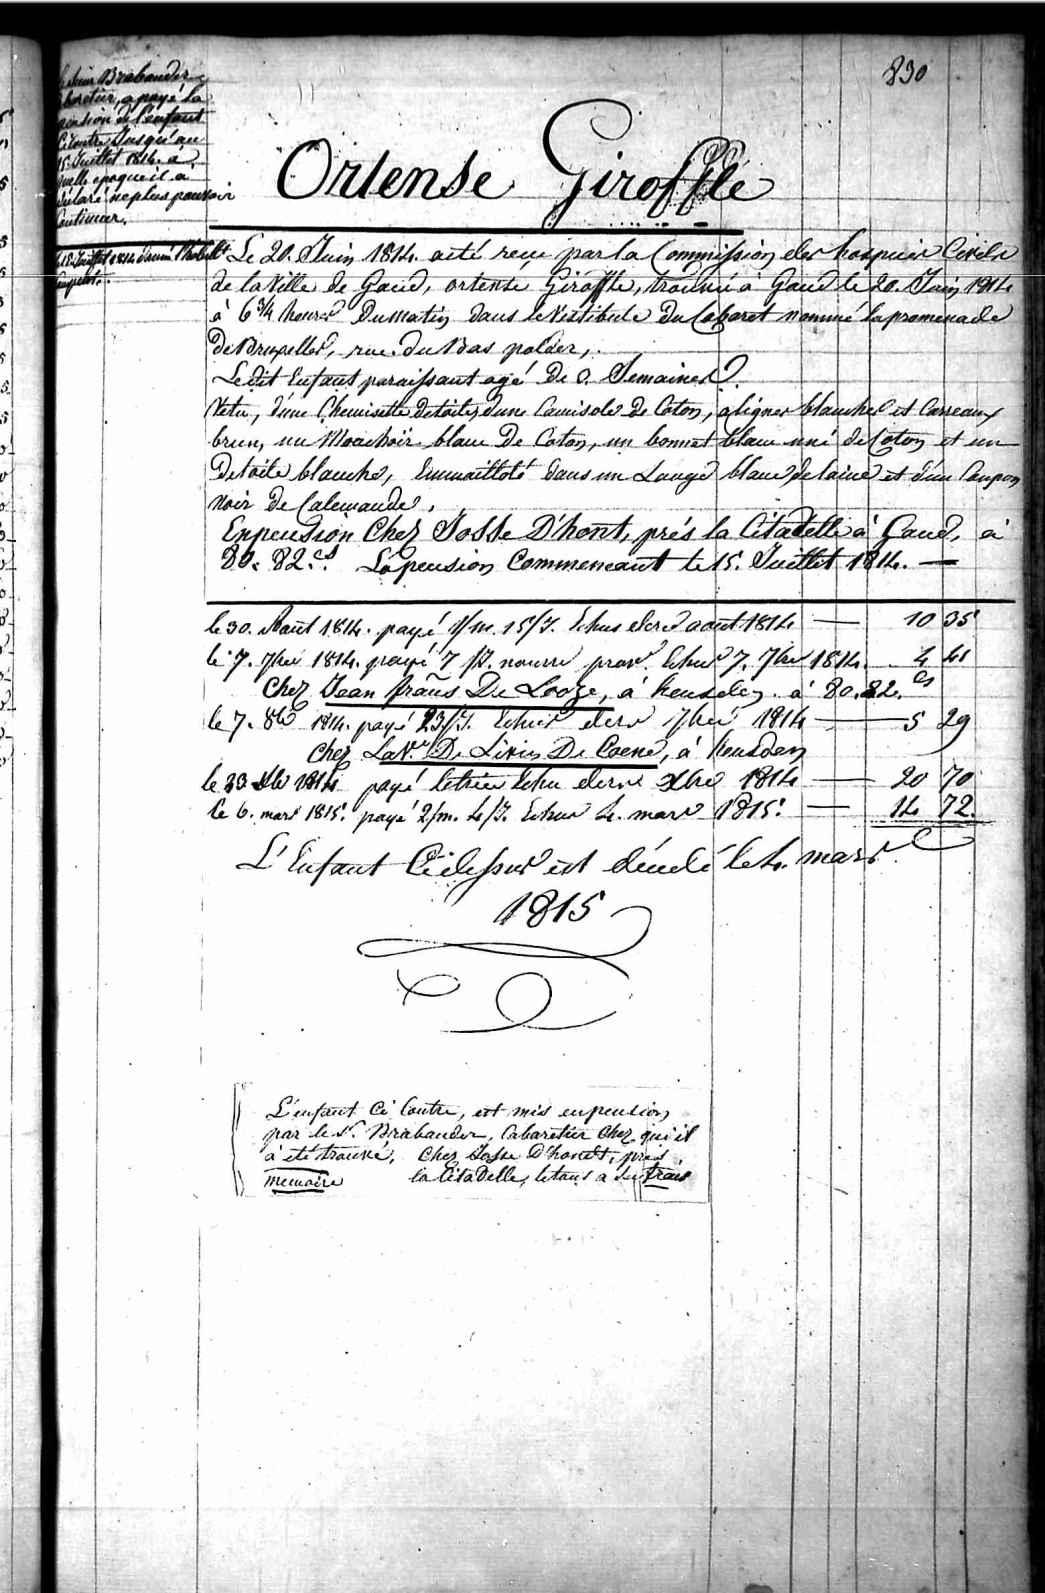 830
Le Sieur Brabander
Cabaretier, a payé la
pension de l'enfant
Cicontre Jusqu'au
15. Juillet 1814. à
quelle epoque il a
declaré ne plus pouvoir
Continuer.
Ortense Girofflé
Le 20. Juin 1814. a eté reçu par la Commission des hospices Civils
de la Ville de Gand, ortense Girofflé, trouvé à Gand le 20. Juin 1814
à 6 3/4 heures Dumatin dans le Vestibule Du Cabaret nommé la promenade
De Bruxelles, rue. du Bas polder,.
Ledit Enfant paraissant agé De 0. Semaines.
Vetu, d'une Chemisette de toile, d'une Camisole De Coton, à lignes blanches et Carreaux
brun, un Mouchoir blanc De Coton, un bonnet blanc uni de Coton et un
De toile blanche, Emmailloté dans un Lange blanc de laine et d'un Coupon
noir de Calemande,
En pension Chez Josse D'hont, prés la Citadelle à Gand, à
80. 82.cs La pension Commencant le 15. Juillet 1814. —
le 30. Aout 1814. payé 1/m. 15/J. Echus dere aout 1814 — 10 35
le 7. 7bre 1814. payé 7/J. nourre prov. Echus 7. 7bre 1814. 4 41
Chez Jean frans De Looze, à heusden. à 80. 82. cs
le 7. 8bre 1814. payé 23/J. Echus dere 7bre 1814 — 5 29
Chez La Ve De Livin De Coene, à heusden
le 23 Xbre 1814 payé letrim Echu dere Xbre 1814 — 20 70
le 6. mars 1815. payé 2/m. 4/J. Echus 4. mars 1815. — 14 72.
L'Enfant Cidessus est décédé le 4. mars
1815
L'enfant Ci Contre, est mis en pension
par le Sr. Brabander, Cabaretier Chez qui il
à eté trouvé, Chez Josse D'hondt, près
memoire la Citadelle, le tout à ses frais